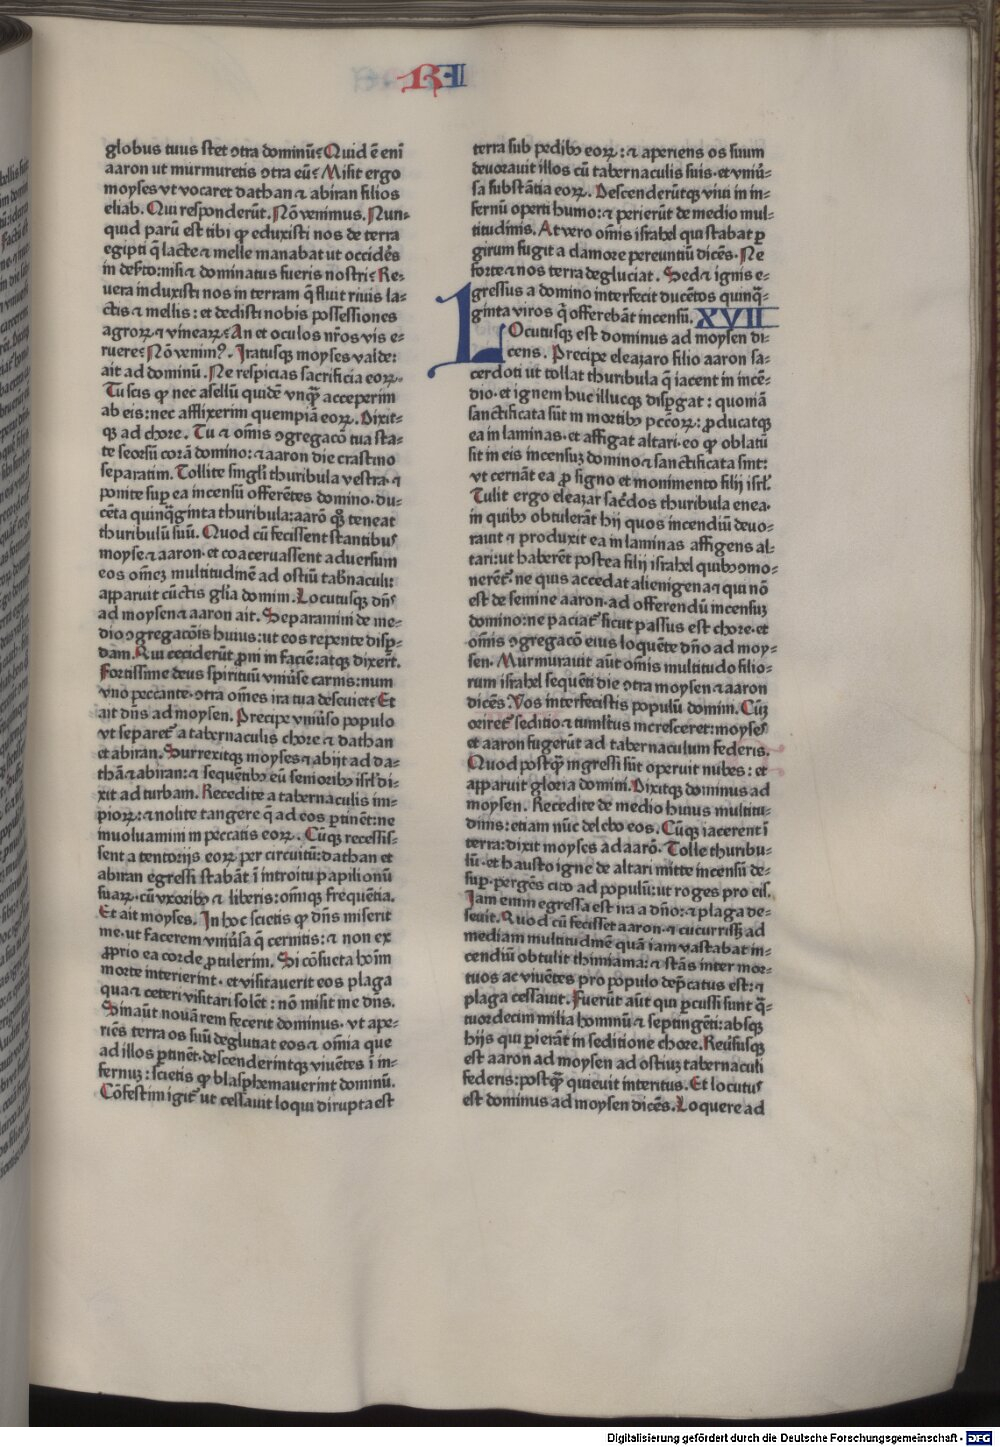 RI
globus tuus stet ↄtra dominū? Quid ē eni
aaron ut murmuretis ↄtra eū? Misit ergo
moyses vt vocaret dathan ⁊ abiran filios
eliab. Qui responderūt. Nō venimus. Nun-
quid parū est tibi ꝙ eduxisti nos de terra
egipti q̄ lacte ⁊ melle manabat ut occidēs
in deſto: nisi ⁊ dominatus fueris nostri? Re-
uera induxisti nos in terram q̄ fluit riuis la-
ctis ⁊ mellis: et dedisti nobis possessiones
agroꝝ ⁊ vineaꝝ? An et oculos nr̄os vis e-
ruere? Nō venim?. Iratusqꝫ moyses valde:
ait ad dominū. Ne respicias sacrificia eoꝝ.
Tu scis ꝙ nec asellū quidē vnqꝫ̄ acceperim
ab eis: nec afflixerim quempiā eoꝝ. Dixit-
qꝫ ad chore. Tu ⁊ om̄is ↄgregacō tua sta-
te seorsū corā domino: ⁊ aaron die crastino
separatim. Tollite singl̄i thuribula vestra. ⁊
ponite suꝑ ea incensū offerētes domino. du-
cēta quinq̄ginta thuribula: aarō qꝫ teneat
thuribulū suū. Quod cū fecissent stantibus
moyse ⁊ aaron. et coaceruassent aduersum
eos omēꝫ multitudinē ad ostiū tab̄naculi:
apparuit cūctis gl̄ia domini. Locutusqꝫ dn̄s
ad moysen ⁊ aaron ait. Separamini de me-
dio ↄgregacōis huius: ut eos repente disꝑ-
dam. Qui ceciderūt ꝓni in faciē: atqꝫ dixer̄t.
Fortissime deus spirituū vniuse carnis: num
vno peccante. ↄtra om̄es ira tua deseuiet? Et
ait dn̄s ad moysen. Precipe vniūso populo
vt separet᷑ a tabernaculis chore ⁊ dathan
et abiran. Surrexitqꝫ moyses ⁊ abijt ad da-
thā ⁊ abiran: ⁊ sequētibꝰ eū senioribꝰ isrl̄ di-
xit ad turbam. Recedite a tabernaculis im-
pioꝝ: ⁊ nolite tangere q̄ ad eos ꝑtinēt: ne
inuoluamini in peccatis eoꝝ. Cūqꝫ recessis-
sent a tentorijs eoꝝ per circuitū: dathan et
abiran egressi stabāt ī introitu papilionū
suaꝝ. cū vxoribꝰ ⁊ liberis: omīqꝫ frequētia.
Et ait moyses. In hoc scietis ꝙ dn̄s miserit
me. ut facerem vniūsa q̄ cernitis: ⁊ non ex
ꝓprio ea corde ꝓtulerim. Si cōsueta hoīm
morte interierint. et visitauerit eos plaga
qua ⁊ ceteri visitari solēt: nō misit me dn̄s.
Sin aūt nouā rem fecerit dominus. vt ape-
riēs terra os suū deglutiat eos ⁊ om̄ia que
ad illos ꝑtinēt. descenderintqꝫ viuētes ī in-
fernuꝫ: scietis ꝙ blasphemauerint dominū.
Cōfestim igit᷑ ut cessauit loqui dirupta est
terra sub pedibꝰ eoꝝ: ⁊ aperiens os suum
deuorauit illos cū tabernaculis suis. et vniū-
sa substātia eoꝝ. Descenderūtqꝫ viui in in-
fernū operti humo: ⁊ perierūt de medio mul-
titudinis. At vero om̄is israhel qui stabat ꝑ
girum fugit a clamore pereuntiū dicēs. Ne
forte ⁊ nos terra degluciat. Sed ⁊ ignis e-
gressus a domino interfecit ducētos quinq̄-
ginta viros q̄ offerebāt incensū. XVII
LOcutusqꝫ est dominus ad moysen di-
cens. Precipe eleazaro filio aaron sa-
cerdoti ut tollat thuribula q̄ iacent in incē-
dio. et ignem huc illucqꝫ disꝑgat: quoniā
sanctificata sūt in mortibꝰ pccōꝝ: ꝓducatqꝫ
ea in laminas. et affigat altari. eo ꝙ oblatū
sit in eis incensuꝫ domino ⁊ sanctificata sint:
vt cernāt ea ꝓ signo et monimento filij isrl̄.
Tulit ergo eleazar sac̄dos thuribula enea.
in quibꝰ obtulerāt hij quos incendiū deuo-
rauit ⁊ produxit ea in laminas affigens al-
tari: ut haberēt postea filij israhel quibꝰ ↄmo-
nerēt᷑. ne quis accedat alienigena ⁊ qui nō
est de semine aaron. ad offerendū incensuꝫ
domino: ne paciat᷑ sicut passus est chore. et
om̄is ↄgregacō eius loquēte dn̄o ad moy-
sen. Murmurauit aūt om̄is multitudo filio-
rum israhel sequēti die ↄtra moysen ⁊ aaron
dicēs. Vos interfecistis populū domini. Cūqꝫ
oriret᷑ seditio ⁊ tumltus incresceret: moyses
et aaron fugerūt ad tabernaculum federis.
Quod postqꝫ̄ ingressi sūt operuit nubes: et
apparuit gloria domini. Dixitqꝫ dominus ad
moysen. Recedite de medio huius multitu-
dinis: etiam nūc delebo eos. Cūqꝫ iacerent ī
terra: dixit moyses ad aarō. Tolle thuribu-
lū. et hausto igne de altari mitte incensū de-
suꝑ. pergēs cito ad populū: ut roges pro eis.
Iam enim egressa est ira a dn̄o: ⁊ plaga de-
seuit. Quod cū fecisset aaron. ⁊ cucurrissꝫ ad
mediam multitudinē quā iam vastabat in-
cendiū obtulit thimiama: ⁊ stās inter mor-
tuos ac viuētes pro populo dep̄catus est: ⁊
plaga cessauit. Fuerūt aūt qui ꝑcussi sunt q̄-
tuordecim milia hominū ⁊ septingēti: absqꝫ
hijs qui ꝑierāt in seditione chore. Reūsusqꝫ
est aaron ad moysen ad ostiuꝫ tabernaculi
federis: postqꝫ̄ quieuit interitus. Et locutus
est dominus ad moysen dicēs. Loquere ad
Digitalisierung gefördert durch die Deutsche Forschungsgemeinschaft - DFG